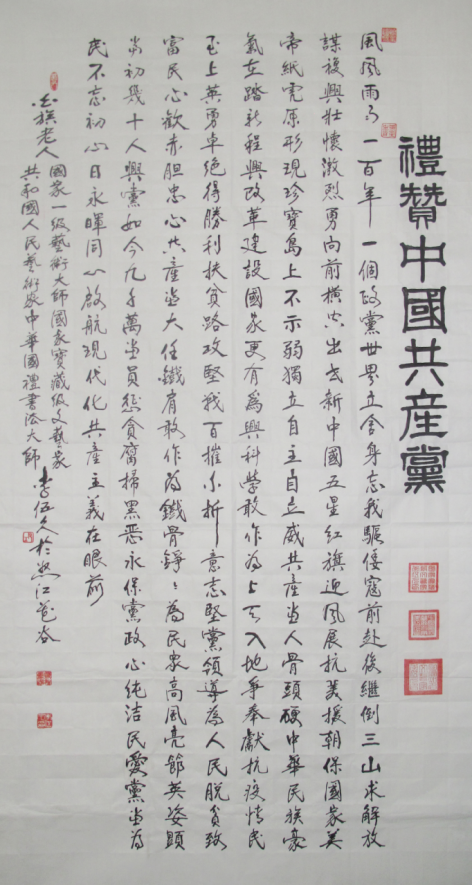 禮贊中國共產黨
風風雨雨一百年一個政黨世界立舍身忘我驅倭寇前赴後繼倒三山求解放
謀複興壯懷激烈勇向前橫空出世新中國五星红旗迎風展抗美援朝保國家美
帝紙虎原形現珍寶島上不示弱獨立自主自立威共產党人骨頭硬中華民族豪
氣在踏新程興改革建設國家更有為興科學敢作為上天入地爭奉獻抗疫情民
至上英勇卓絕得勝利扶貧路攻堅战百摧不折意志堅黨領導為人民脫貧致
富民心歡赤胆忠心共產党大任鐵肩敢作為鐵骨錚々為民眾高風亮節英姿顯
當初幾十人興黨如今九千萬党員懲貪腐掃黑惡永保黨政心純洁民愛黨党為
民不忘初心日永暉同心啟航現代化共產主義在眼前
族老人
國家一級藝術大師國家寶藏級文藝家
共和國人民藝術家中華國禮書法大師
李伍久於怒江